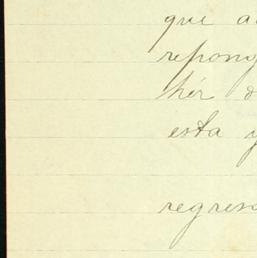 que a
repong
her d
esta y
regres